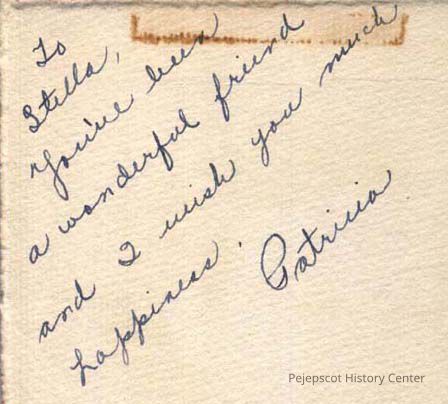 To
Stella,
You've been
a wonderful friend
and I wish you much
happiness.
Patricia
Pejepscot History Center